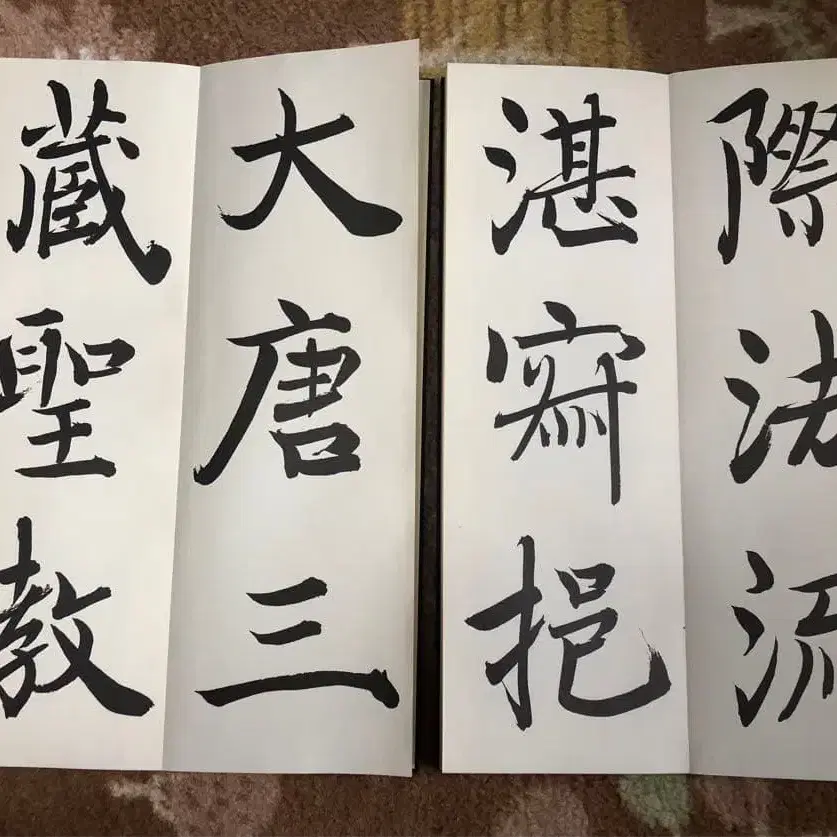 際法流
湛寂挹
大唐三
藏聖教